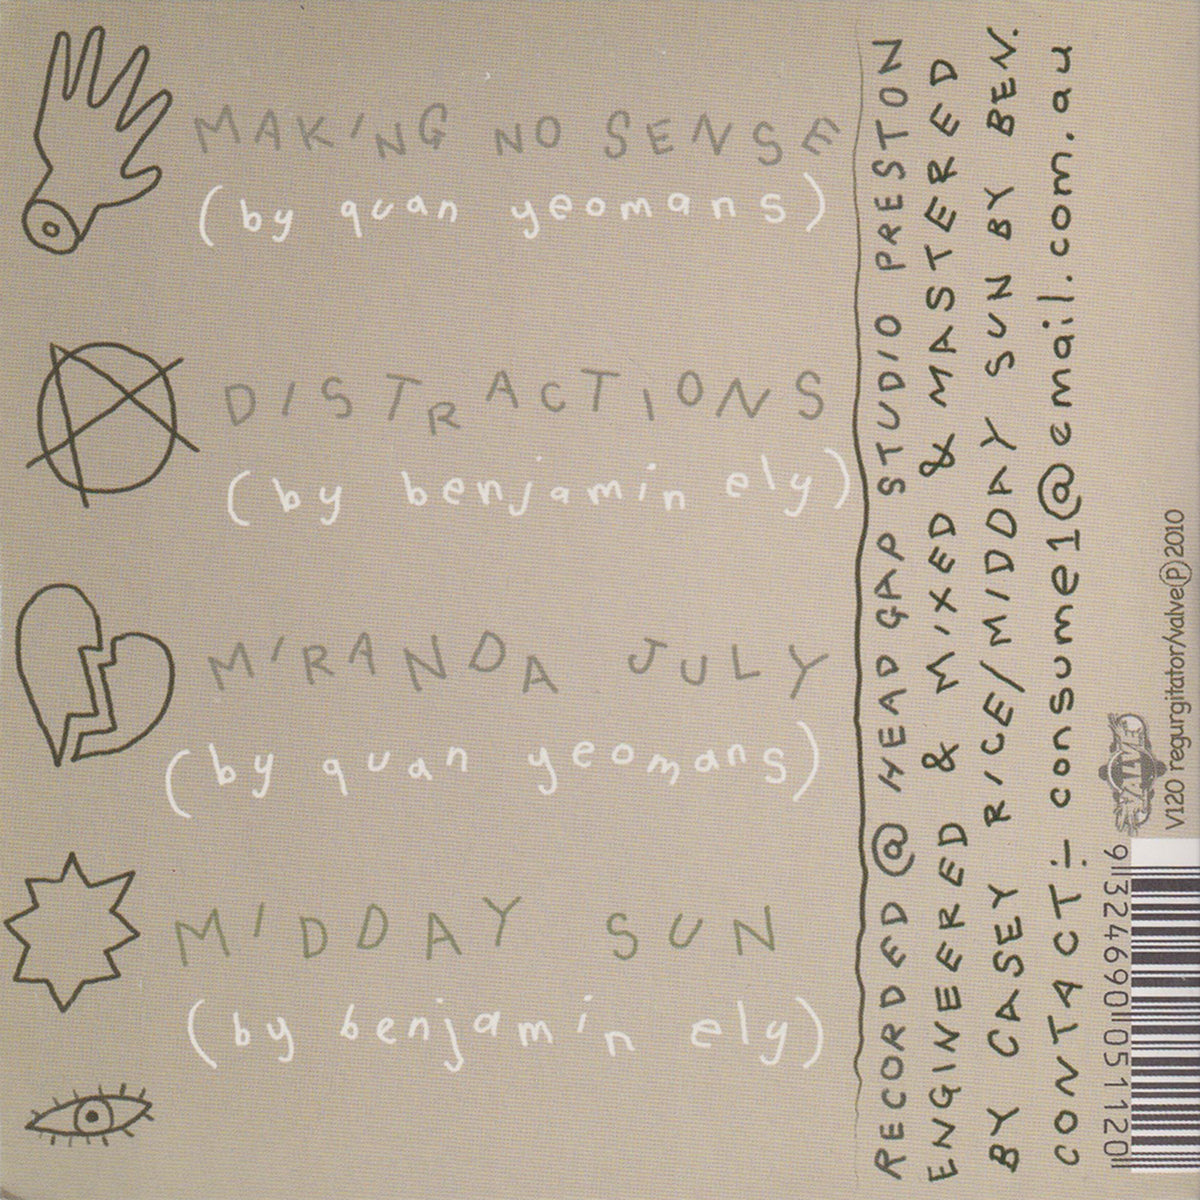 MAKING NO SENSE
(by quan yeomans)
DISTRACTIONS
(by benjamin ely)
MIRANDA JULY
(by quan yeomans)
MIDDAY SUN
(by benjamin ely)
RECORDED @ HEAD GAP STUDIO PRESTON
ENGINEERED & MIXED & MASTERED
BY CASEY RICE/MIDDAY SUN BY BEN.
CONTACT:- consume1@email.com.au
VALVE
V120 regurgitator/valve℗2010
9 324690 051120